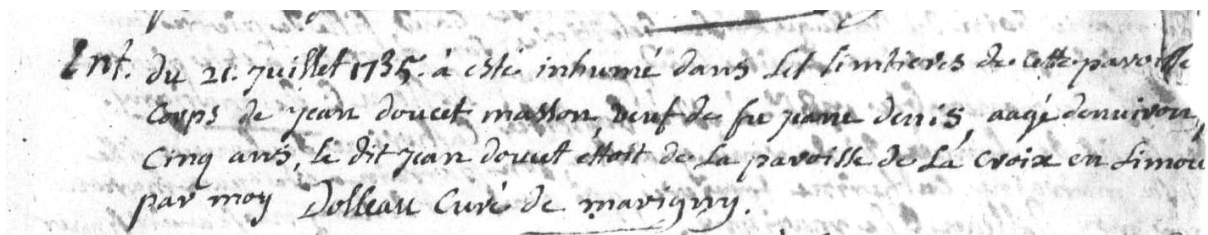 Ent. du 21. juillet 1735. à esté inhumé dans les simtieres de cette paroisse
corps de jean doucet masson, veuf de fe jeane denis, aagé denviron
cinq ans, le dit jean doucet estoit de La paroisse de La croix en Limou
par moy Dolbeau Curé de marigny.